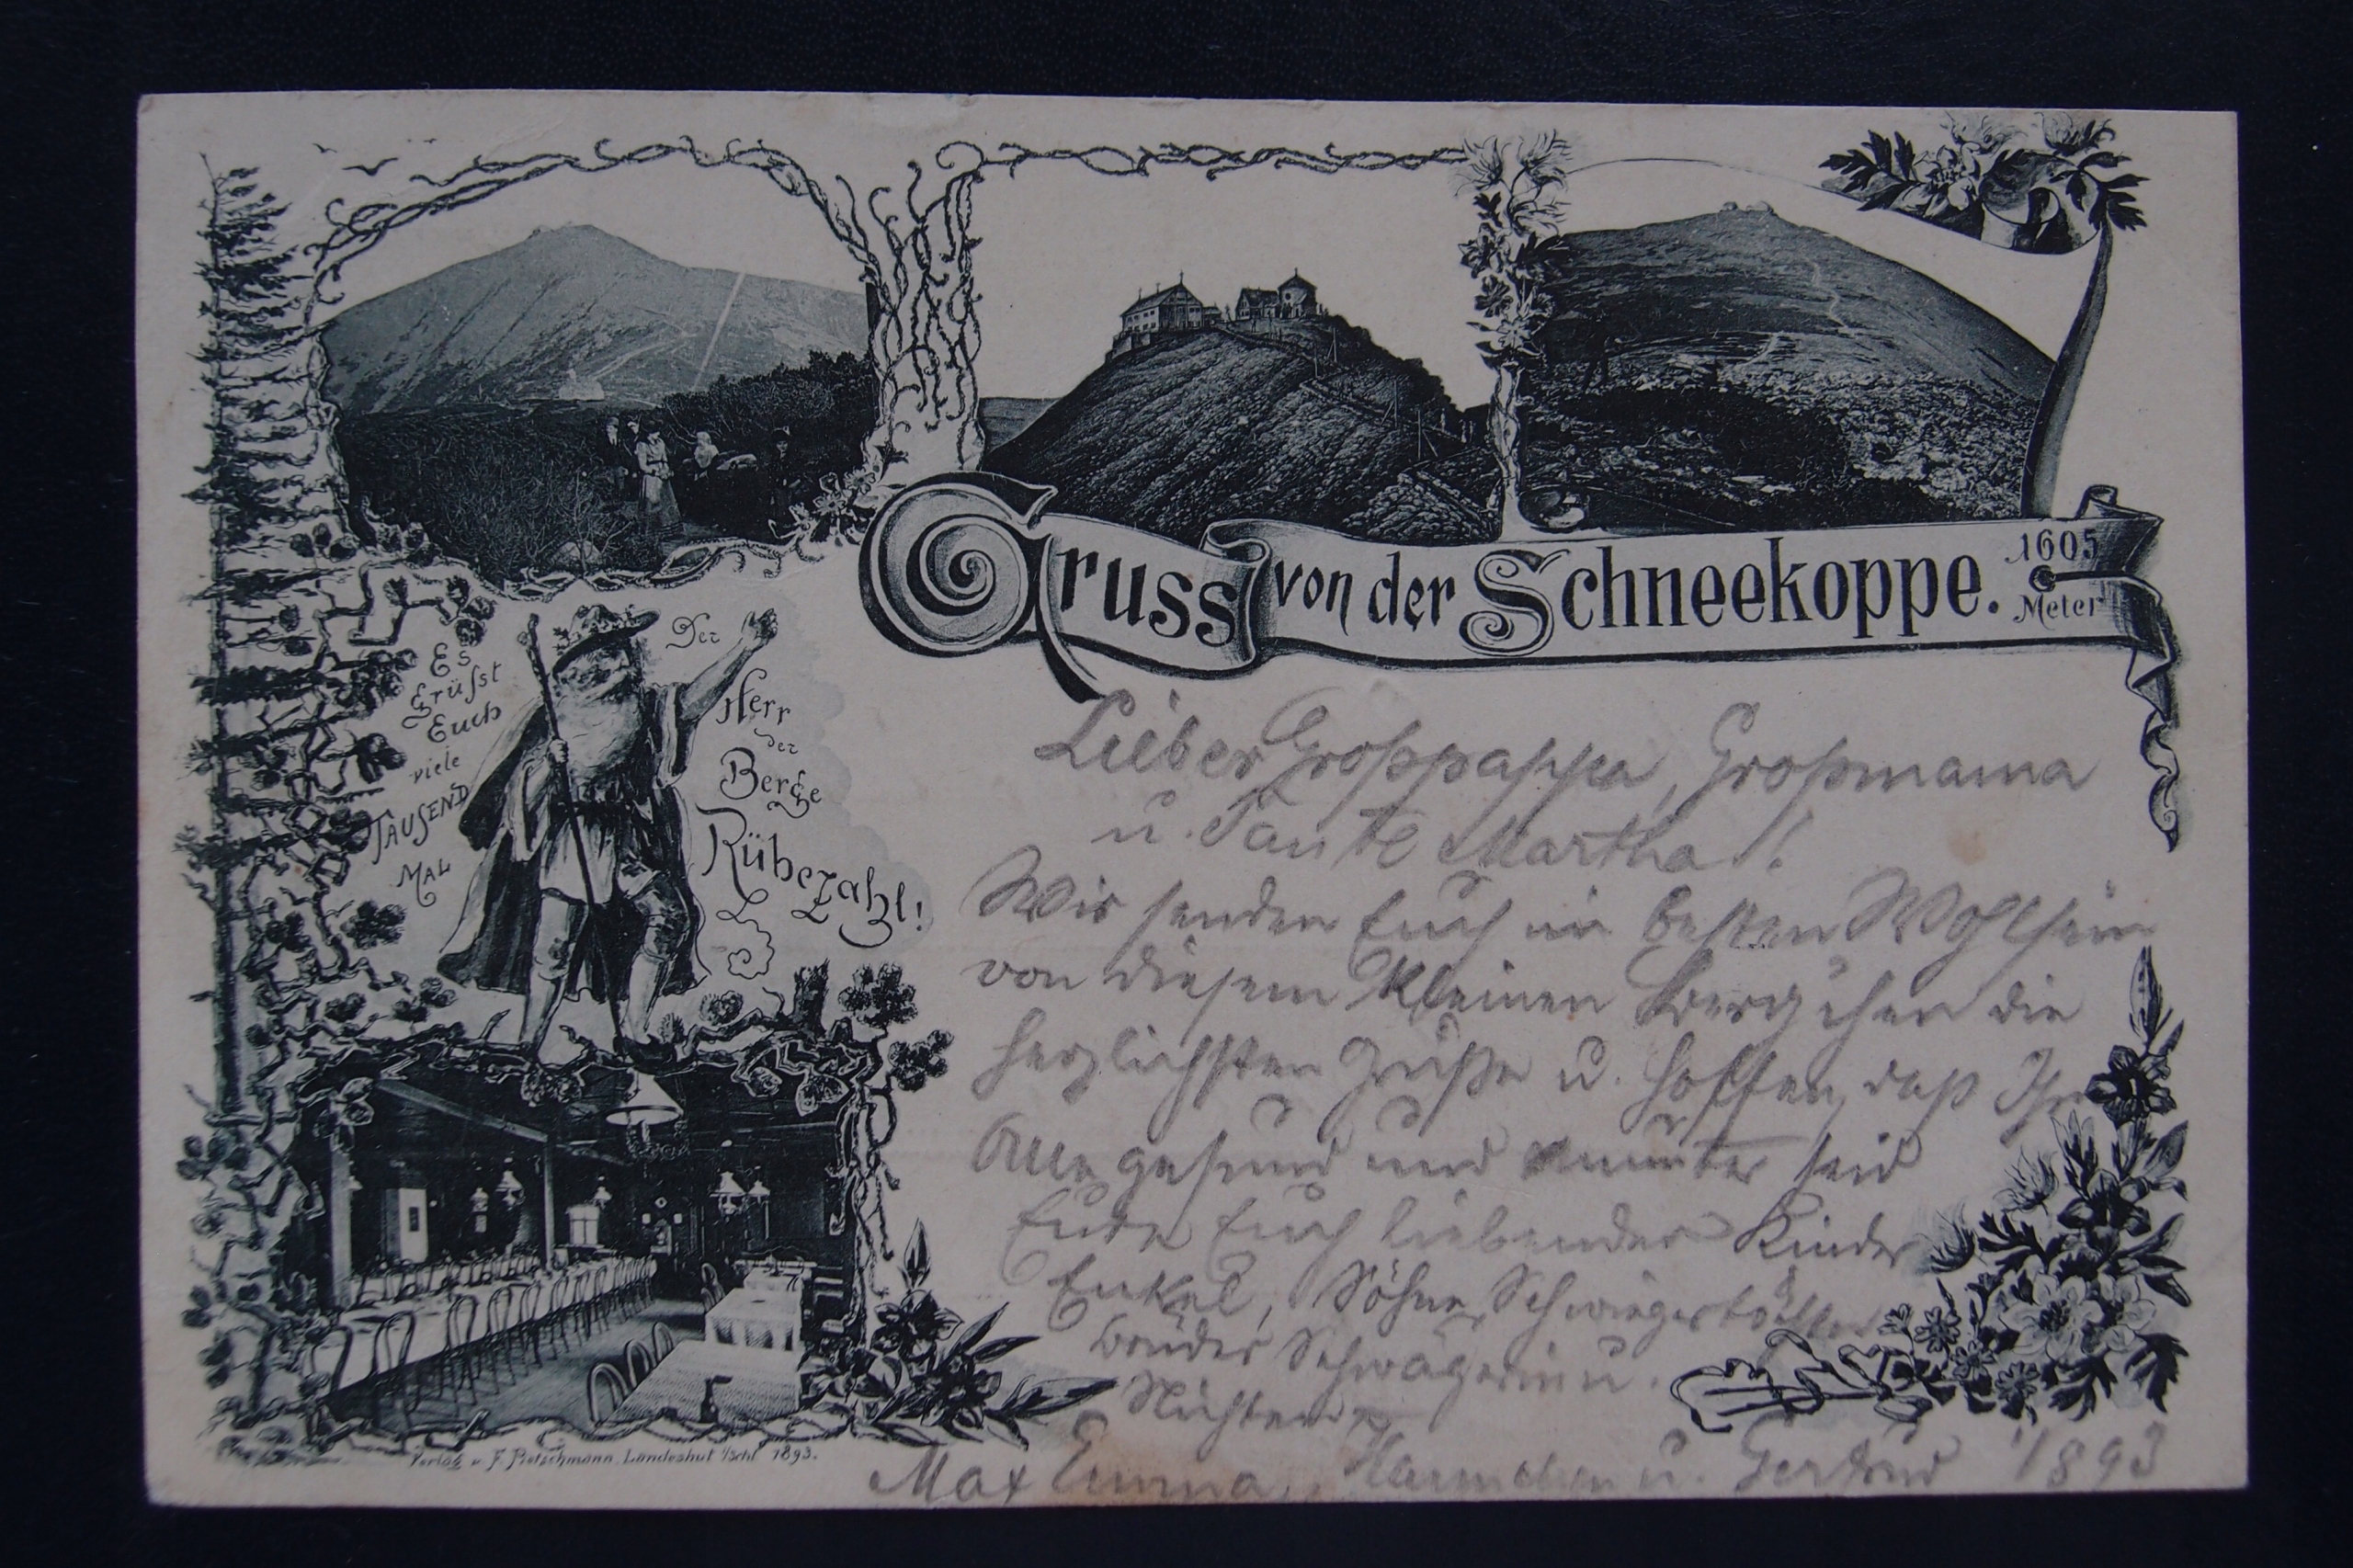 Gruss von der Schneekoppe. 1605 Meter
Es
grüsst
Euch
viele
TAUSEND
MAL
Der
Herr
der
Berge
Rübezahl!
Lieber Großpappa, Großmama
u. Tante Martha!
Wir senden Euch im besten Wohlsein
von diesem kleinen Bergchen die
herzlichsten Grüße u. hoffen, daß Ihr
Alle gesund und munter seid
Eure Euch liebenden Kinder
Enkel, Söhne, Schwiegertochter
Bruder Schwägerin u.
Nichten
Max Emma, u. Gertrud 1893
Verlag v. F. Pietschmann. Landeshut i/Schl 1893.